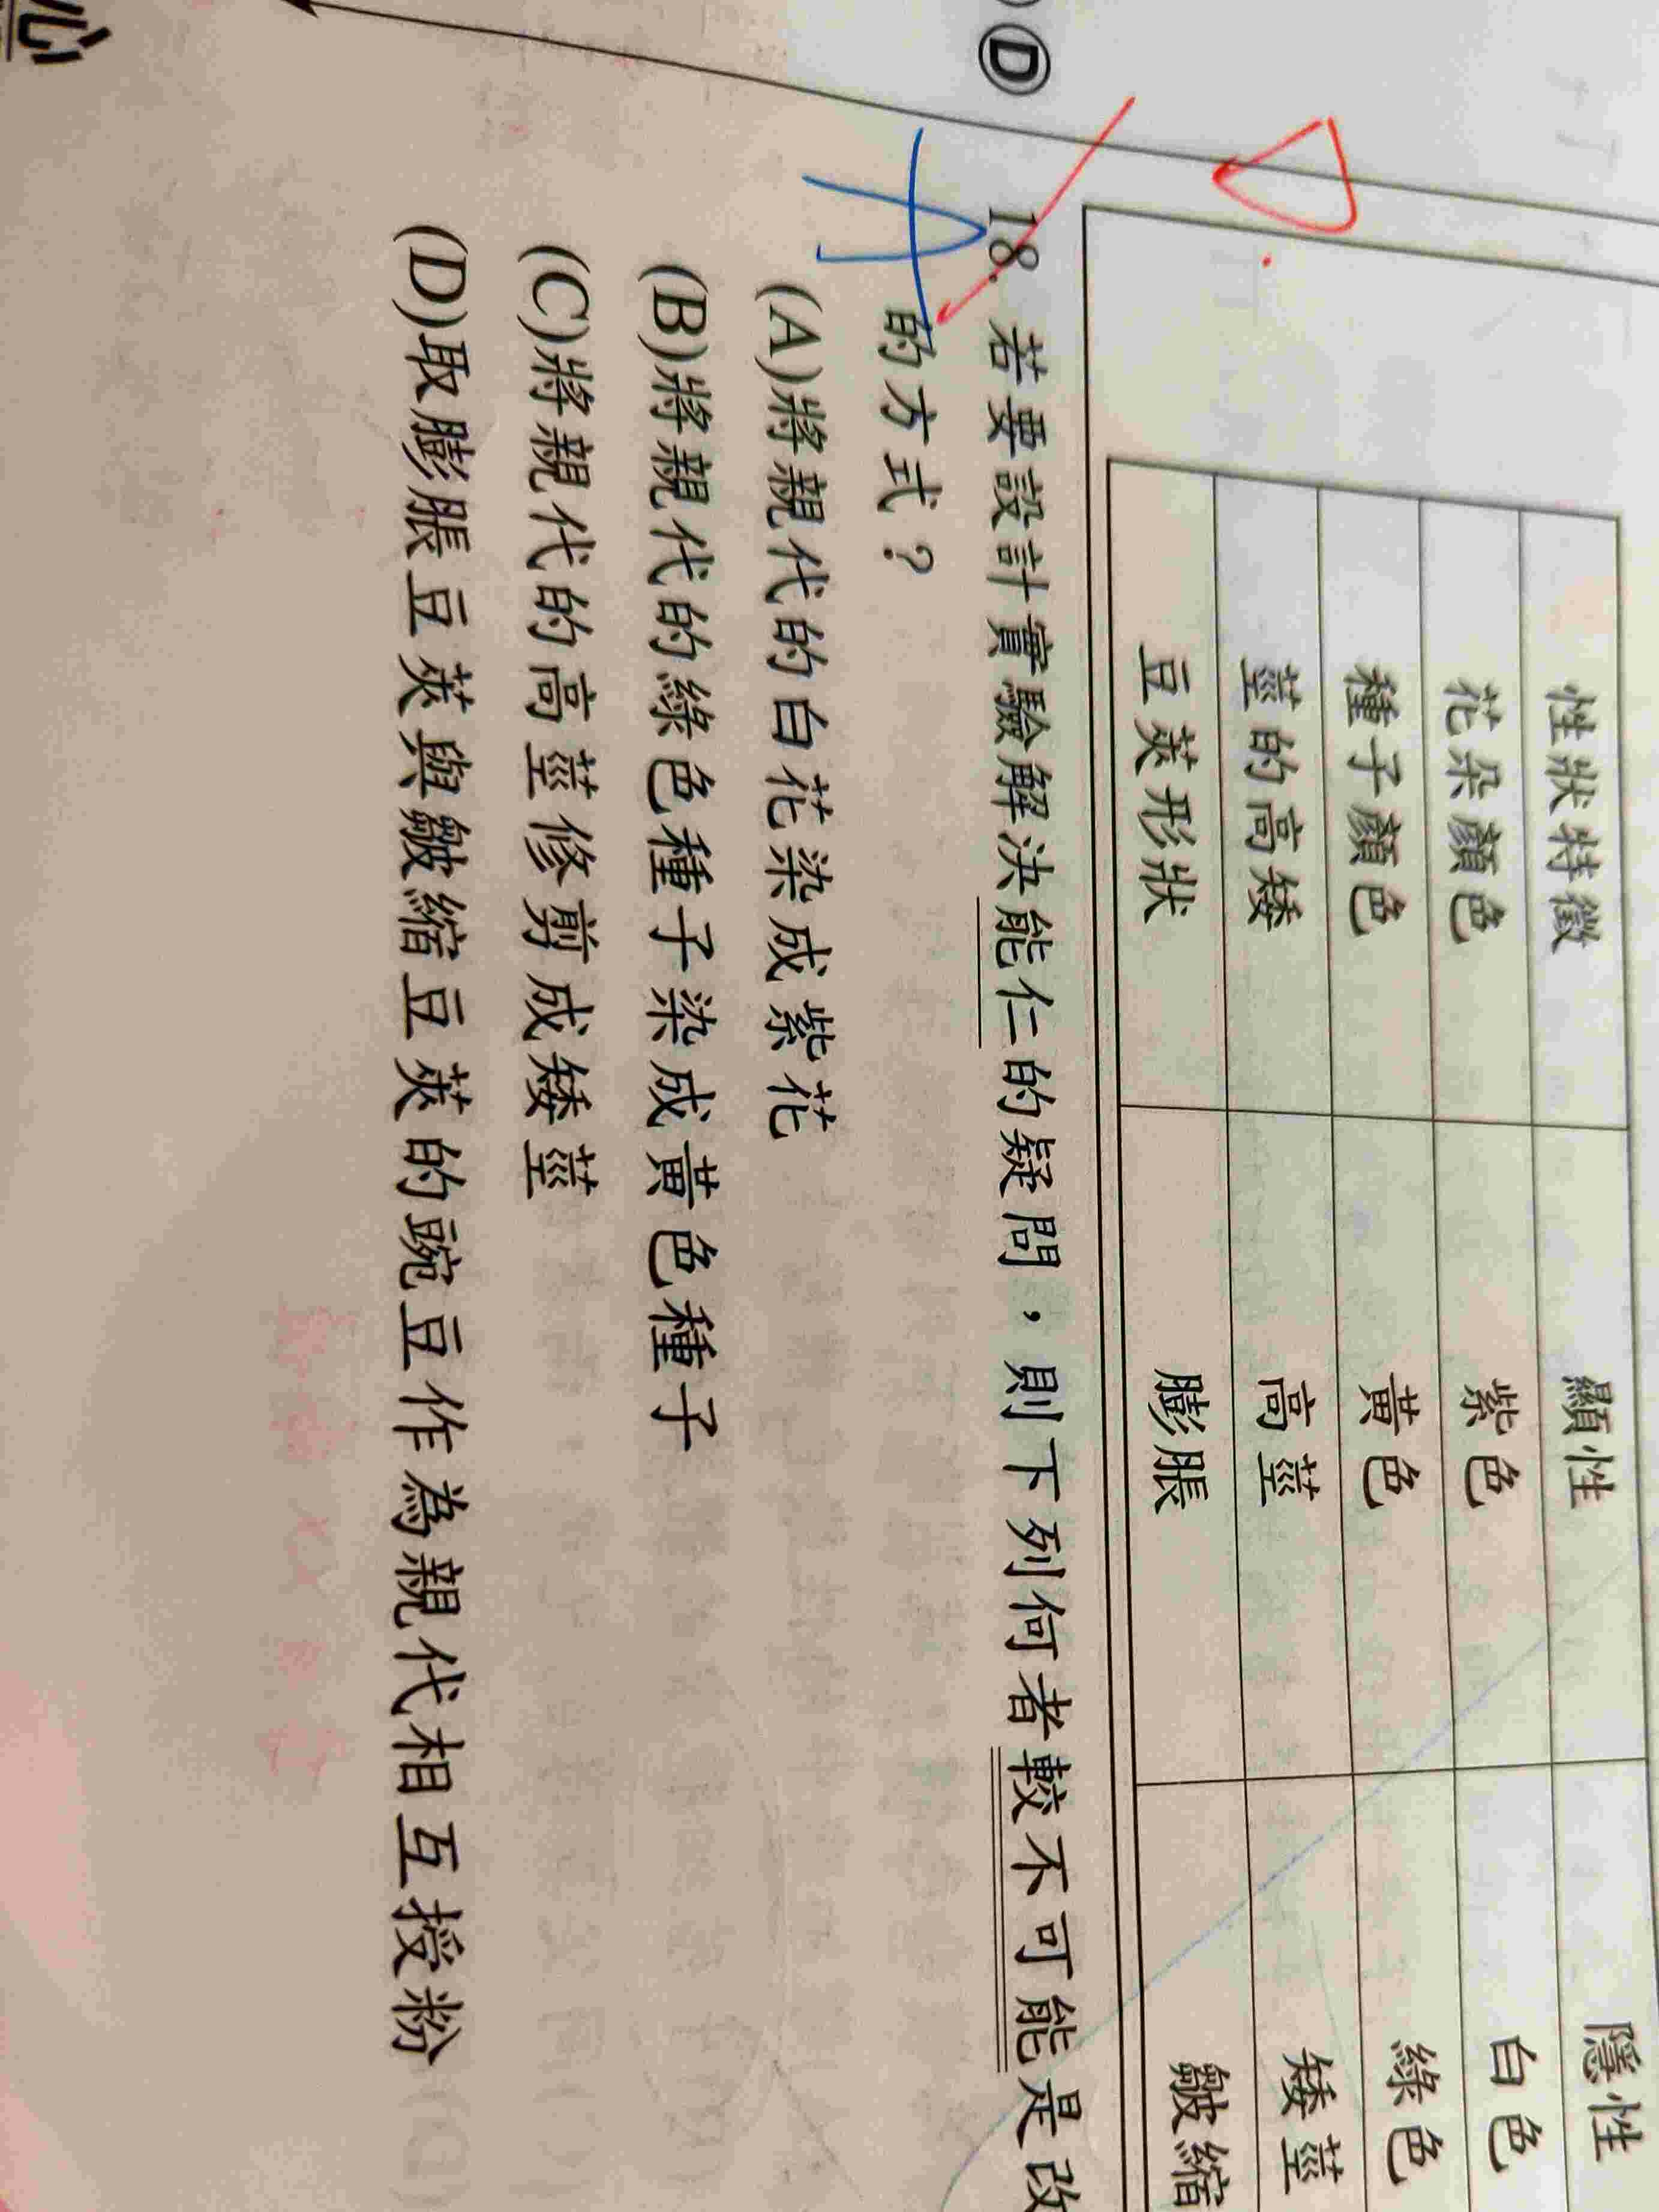 性狀特徵 顯性 隱性
花朵顏色 紫色 白色
種子顏色 黃色 綠色
莖的高矮 高莖 矮莖
豆莢形狀 膨脹 皺縮
D
18. 若要設計實驗解決能仁的疑問，則下列何者較不可能是改
的方式？
(A)將親代的白花染成紫花
(B)將親代的綠色種子染成黃色種子
(C)將親代的高莖修剪成矮莖
(D)取膨脹豆莢與皺縮豆莢的豌豆作為親代相互授粉
心